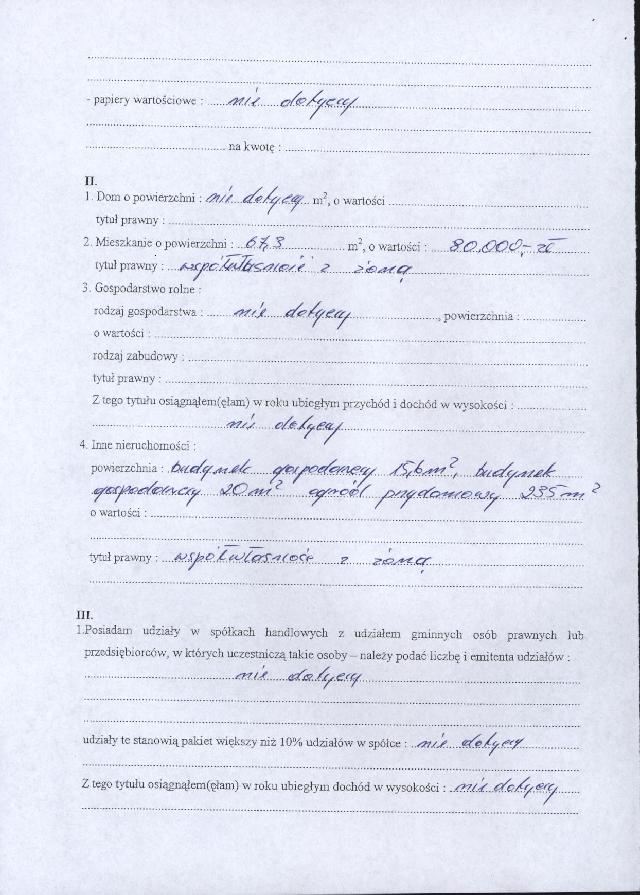 - papiery wartościowe : nie dotyczy
na kwotę :
II.
1. Dom o powierzchni : nie dotyczy m², o wartości
tytuł prawny :
2. Mieszkanie o powierzchni : 67,3 m², o wartości : 80.000,- zł
tytuł prawny : współwłasność z żoną
3. Gospodarstwo rolne :
rodzaj gospodarstwa : nie dotyczy, powierzchnia :
o wartości :
rodzaj zabudowy :
tytuł prawny :
Z tego tytułu osiągnąłem(ęłam) w roku ubiegłym przychód i dochód w wysokości :
nie dotyczy
4. Inne nieruchomości :
powierzchnia : budynek gospodarczy 15,6 m², budynek
gospodarczy 20 m² ogród przydomowy 235 m²
o wartości :
tytuł prawny : współwłasność z żoną
III.
1.Posiadam udziały w spółkach handlowych z udziałem gminnych osób prawnych lub
przedsiębiorców, w których uczestniczą takie osoby – należy podać liczbę i emitenta udziałów :
nie dotyczy
udziały te stanowią pakiet większy niż 10% udziałów w spółce : nie dotyczy
Z tego tytułu osiągnąłem(ęłam) w roku ubiegłym dochód w wysokości : nie dotyczy